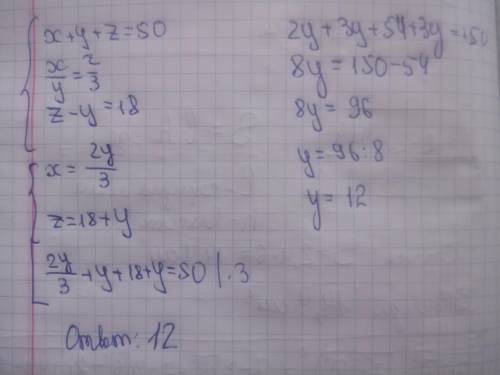 x+y+z=50
x/y=2/3
z-y=18
x=2y/3
z=18+y
2y/3+y+18+y=50 |·3
2y+3y+54+3y=150
8y=150-54
8y=96
y=96:8
y=12
Ответ: 12